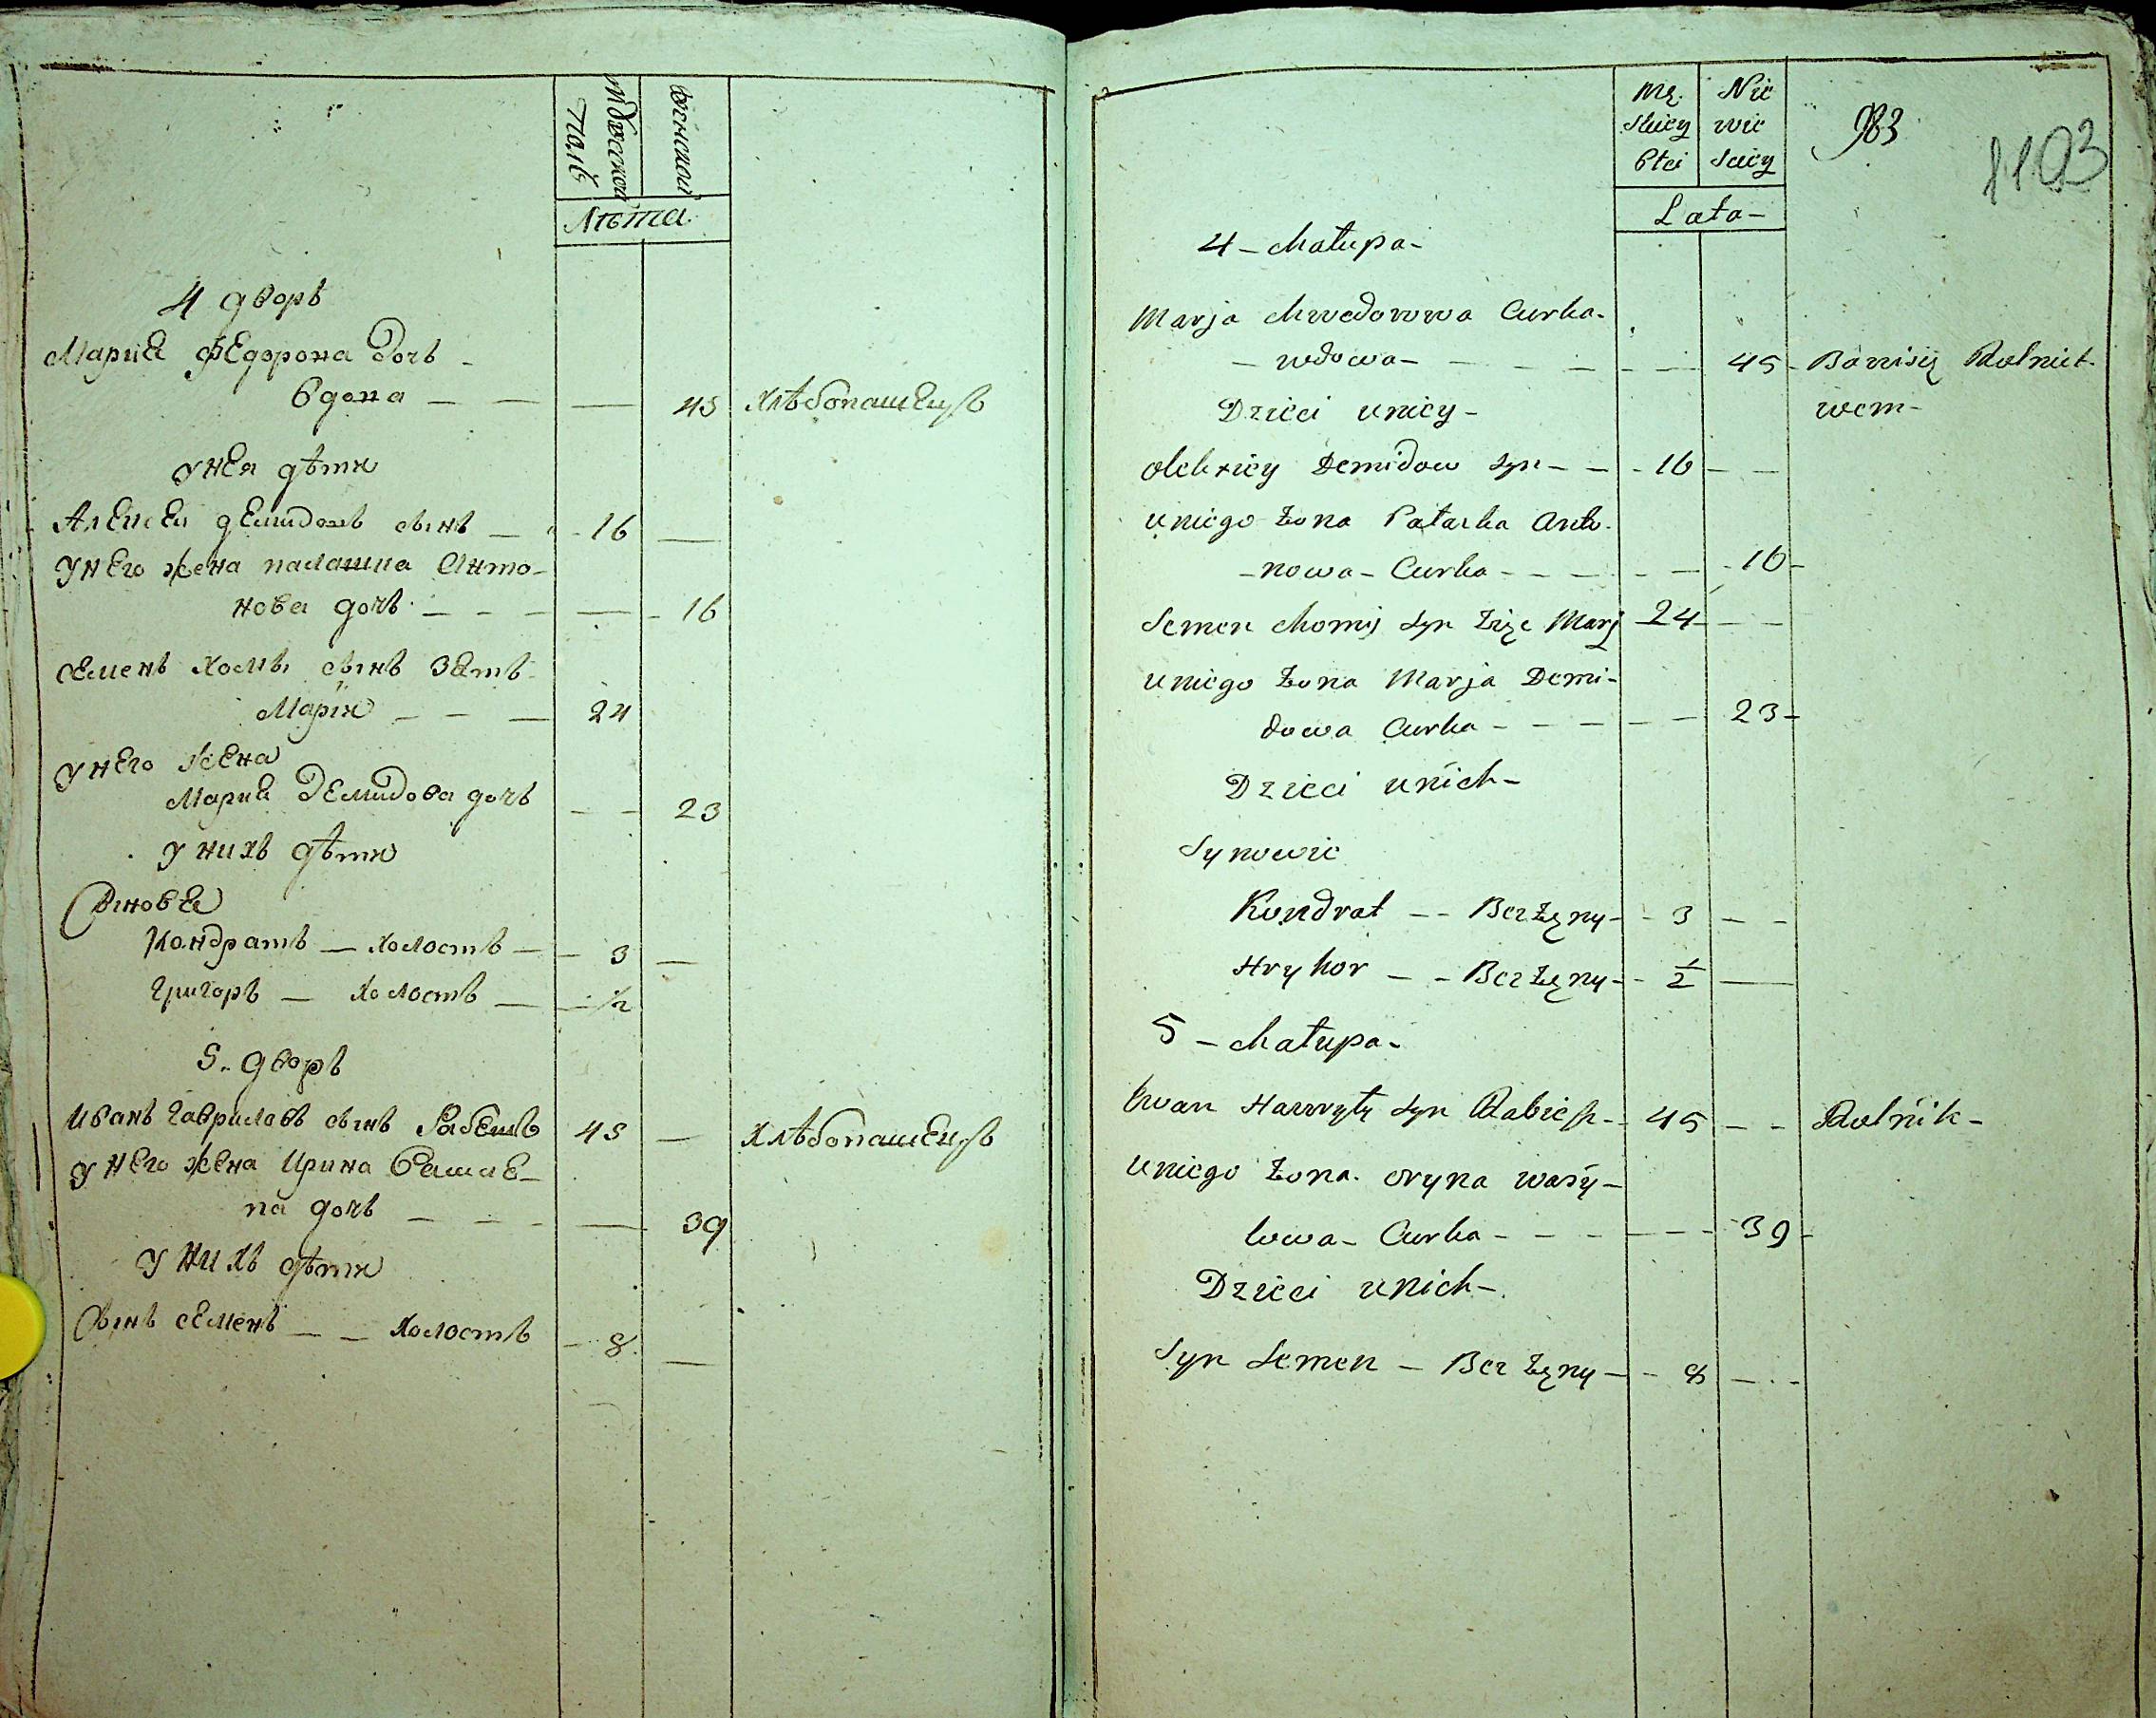 мужеской
полъ
женской
Лѣта
4 дворъ
Мариа Федорова дочь
вдова — — — 45 хлѣбопашецъ
у нея дѣти
Алексеи демидовъ сынъ — 16 —
у него жена палашка Анто-
нова дочь — — — — 16
семенъ хомы сынъ зать
Маріи — — — 24
у него жена
Мариа Демидова дочь — — 23
у нихъ дѣти
Сыновья
Кондратъ — холостъ — — 3 —
Григоръ — холостъ — — 1/2
5. дворъ
Иванъ Гавриловъ сынъ 45 — хлѣбопашецъ
у него жена Ирина
дочь — — — — 39
у нихъ дѣти
Сынъ семенъ — — холостъ — 8 —
Mę-
skiey
Płci
Nie
wie
sciey
983
1103
Lata —
4 — Chałupa —
Marja Chwedorowa Curka —
— wdowa — — — — — — 45 — Bawisię Rolnict-
wem —
Dzieci uniey —
Olekziey Demidow syn — — 16 — —
uniego Żona Pałaska Anto-
— nowa — Curka — — — — — 16 —
Semen Chomy syn Zięć Marj 24 — —
uniego Żona Marja Demi-
dowa Curka — — — — — 23 —
Dzieci unich —
Synowie
Kondrat — — Bez Żęny — 3 — —
Hryhor — — Bez Żęny — 1/2 —
5 — Chałupa —
Iwan Hawryły syn — 45 — — Rolnik —
uniego Żona oryna wasy-
lowa — Curka — — — — — 39 —
Dzieci unich —
Syn Semen — Bez Żęny — — 8 — —